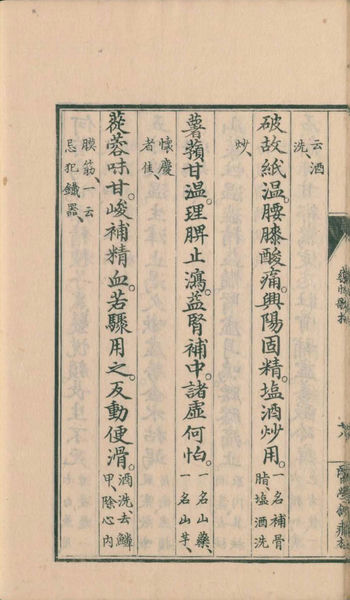 破故紙温。腰膝酸痛。興陽固精。塩酒炒用。一名補骨
脂、塩酒洗
炒、
云酒
洗、
薯蕷甘温。理脾止瀉。益腎補中。諸虛何怕。一名山藥、
一名山芋、
懷慶
者佳、
蓯蓉味甘。峻補精血。若驟用之。反動便滑。酒洗、去鱗
甲、除心内
膜筋一云
忌犯鐵器、